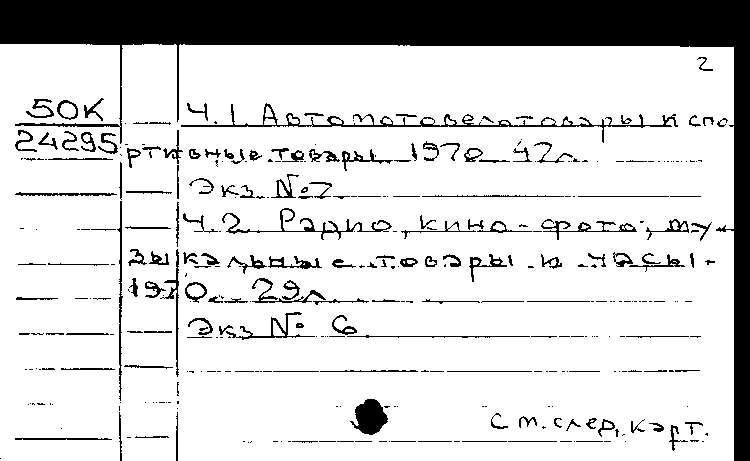 2
50К
24295
Ч.1. Автомотовелотовары и спо
ртивные товары 1970 47л.
Экз №7
Ч.2. Радио, кино-фото-, му-
зыкальные товары и часы-
1970. 29л.
Экз № 6
См. след. карт.